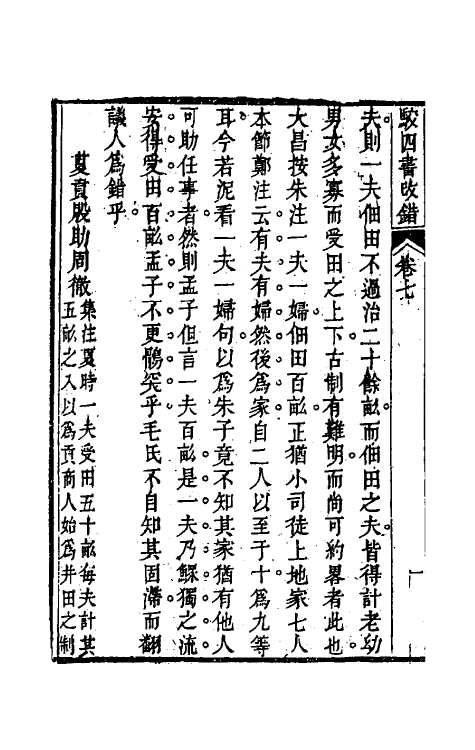 駮四書改錯 卷七 一
夫則一夫佃田不過治二十餘畝而佃田之夫皆得計老幼
男女多寡而受田之上下古制有難明而尚可約畧者此也
大昌按朱注一夫一婦佃田百畝正猶小司徒上地家七人
本節鄭注云有夫有婦然後爲家自二人以至于十爲九等
耳今若泥看一夫一婦句以爲朱子竟不知其家猶有他人
可助任事者然則孟子但言一夫百畝是一夫乃鰥獨之流
安得受田百畝孟子不更鶻突乎毛氏不自知其固滯而翻
議人爲錯乎
夏貢殷助周徹
集注夏時一夫受田五十畝每夫計其
五畝之入以爲貢商人始爲井田之制